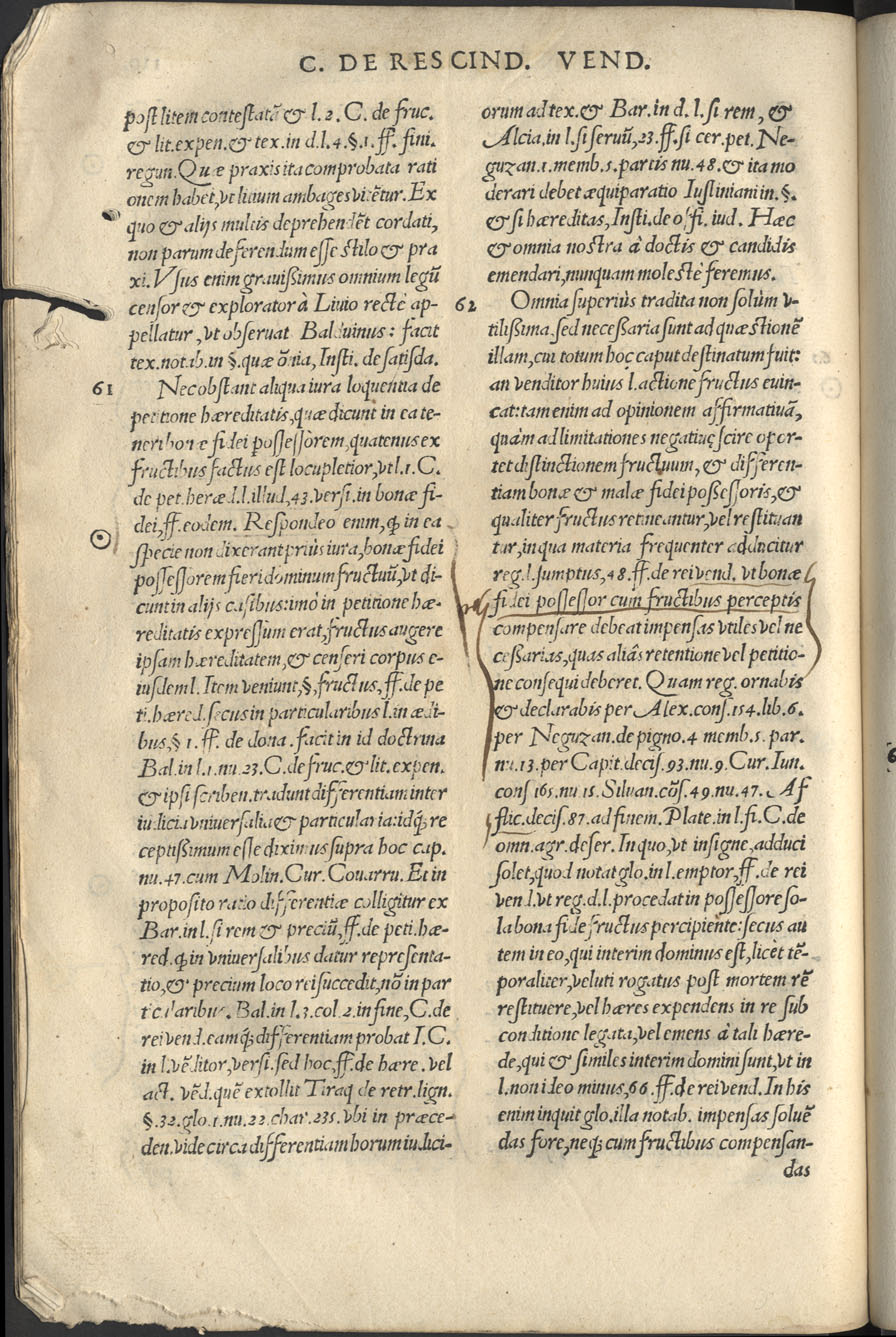 C. DE RESCIND. VEND.
post litem contestatā & l. 2. C. de fruc.
& lit. expen. & tex. in d. l. 4. §. 1. ff. fini.
regun. Quæ praxis ita comprobata rati
onem habet, vt litium ambages vitētur. Ex
quo & alijs multis deprehendēt cordati,
non parum deferendum esse stilo & pra
xi. Vsus enim grauißimus omnium legū
censor & explorator à Liuio rectè ap-
pellatur, vt obseruat Balduinus: facit
tex. not. ib. in §. quæ ōnia, Insti. de satisda.
61 Nec obstant aliqua iura loquentia de
petitione hæreditatis, quæ dicunt in ea te-
neri bonæ fidei possessorem, quatenus ex
fructibus factus est locupletior, vt l. 1. C.
de pet. heræd. l. illud, 43. versi. in bonæ fi-
dei, ff. eodem. Respondeo enim, ꝙ in ea
specie non dixerant priùs iura, bonæ fidei
possessorem fieri dominum fructuū, vt di-
cunt in alijs casibus: imò in petitione hæ-
reditatis expressum erat, fructus augere
ipsam hæreditatem, & censeri corpus e-
iusdem l. Item veniunt, §, fructus, ff. de pe
ti. hæred. secus in particularibus l. in ædi-
bus, § 1. ff. de dona. facit in id doctrina
Bal. in l. 1. nu. 23. C. de fruc. & lit. expen.
& ipsi scriben. tradunt differentiam inter
iudicia vniuersalia & particularia: idq́; re
ceptißimum esse diximus supra hoc cap.
nu. 47. cum Molin. Cur. Couarru. Et in
proposito ratio differentiæ colligitur ex
Bar. in l. si rem & preciū, ff. de peti. hæ-
red. ꝙ in vniuersalibus datur representa-
tio, & precium loco rei succedit, nō in par
ticularibus. Bal. in l. 3. col. 2. in fine, C. de
rei vend. eamq́; differentiam probat I. C.
in l. vēditor, versi. sed hoc, ff. de hære. vel
act. vēd. quē extollit Tiraq de retr. lign.
§. 32. glo. 1. nu. 22. char. 235. vbi in præce-
den. vide circa differentiam horum iudici-
orum ad tex. & Bar. in d. l. si rem, &
Alcia. in l. si seruū, 23. ff. si cer. pet. Ne-
guzan. 1. memb. 5. partis nu. 48. & ita mo
derari debet æquiparatio Iustiniani in. §.
& si hæreditas, Insti. de offi. iud. Hæc
& omnia nostra à doctis & candidis
emendari, nunquam molestè feremus.
62 Omnia superiùs tradita non solùm v-
tilißima. sed necessaria sunt ad quæstionē
illam, cui totum hoc caput destinatum fuit:
an venditor huius l. actione fructus euin-
cat: tam enim ad opinionem affirmatiuā,
quàm ad limitationes negatiuę scire opor-
tet distinctionem fructuum, & differen-
tiam bonæ & malæ fidei poßessoris, &
qualiter fructus retineantur, vel restituan
tur, in qua materia frequenter adducitur
reg. l. sumptus, 48. ff. de rei vend. vt bonæ
fidei possessor cum fructibus perceptis
compensare debeat impensas vtiles vel ne
ceßarias, quas aliâs retentione vel petitio-
ne consequi deberet. Quam reg. ornabis
& declarabis per Alex. cons. 154. lib. 6.
per Neguzan. de pigno. 4 memb. 5. par.
nu. 13. per Capit. decis. 93. nu. 9. Cur. Iun.
cons 165. nu 15. Siluan. cōs. 49. nu. 47. Af
flic. decis. 87. ad finem. Plate. in l. fi. C. de
omn. agr. deser. In quo, vt insigne, adduci
solet, quod notat glo. in l. emptor, ff. de rei
ven d. vt reg. d. l. procedat in possessore so-
la bona fide fructus percipiente: secus au
tem in eo, qui interim dominus est, licèt tē-
poraliter, veluti rogatus post mortem rē
restituere, vel hæres expendens in re sub
conditione legata, vel emens à tali hære-
de, qui & similes interim domini sunt, vt in
l. non ideo minus, 66. ff. de rei vend. In his
enim inquit glo. illa notab. impensas soluē
das fore, neq́; cum fructibus compensan-
das